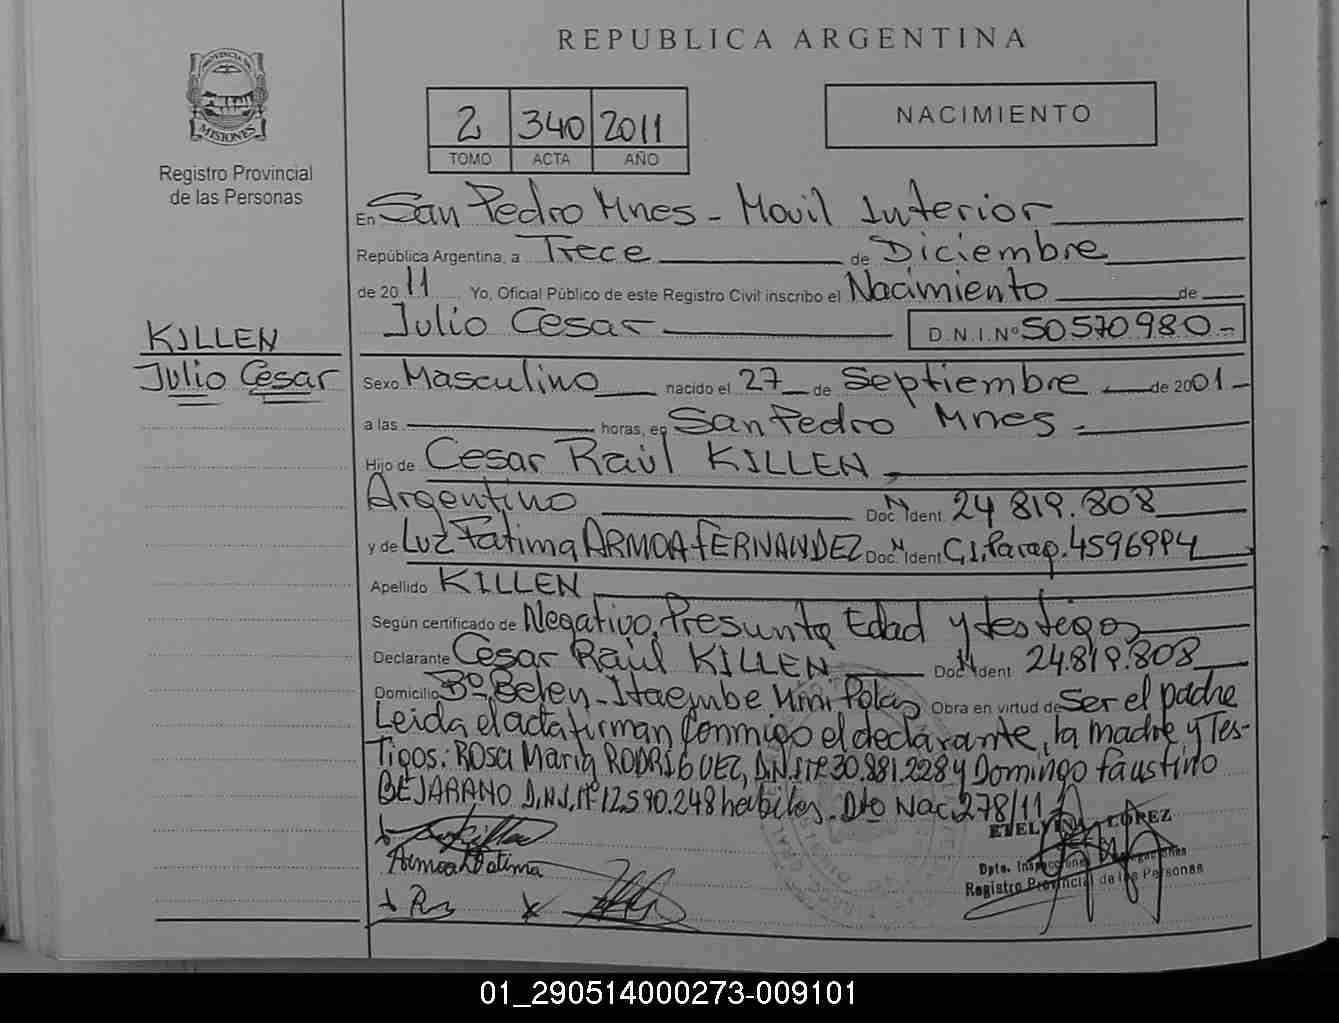 REPUBLICA ARGENTINA
PROVINCIA DE
MISIONES
Registro Provincial
de las Personas
2 340 2011
TOMO ACTA AÑO
NACIMIENTO
En San Pedro Mnes - Movil Interior
República Argentina, a Trece de Diciembre
de 2011 Yo, Oficial Público de este Registro Civil inscribo el Nacimiento de
Julio Cesar D.N.I.Nº 50570980-
KILLEN
Julio Cesar
Sexo Masculino nacido el 27 de Septiembre de 2001-
a las horas, en San Pedro Mnes.
Hijo de Cesar Raúl KILLEN
Argentino Doc. Ident. 24 819.808
y de Luz Fatima ARMOA FERNANDEZ Doc. Ident C.I. Parag. 4596994
Apellido KILLEN
Según certificado de Negativo, Presunta Edad y testigos
Declarante Cesar Raúl KILLEN Doc. Ident 24.819.808
Domicilio Bº Belen - Itaembe Mini Pdas Obra en virtud de Ser el padre
Leida el acta firman conmigo el declarante, la madre y Tes-
Tigos: ROSA María RODRIGUEZ, D.N.I Nº 30.881.228 y Domingo faustino
BEJARANO D.N.I. Nº 12.590.248 hábiles. Dto Nac. 278/11
ETELVINA LOPEZ
Armoa Fatima
Dpto. Inspecciones Delegaciones
Registro Provincial de las Personas
01_290514000273-009101